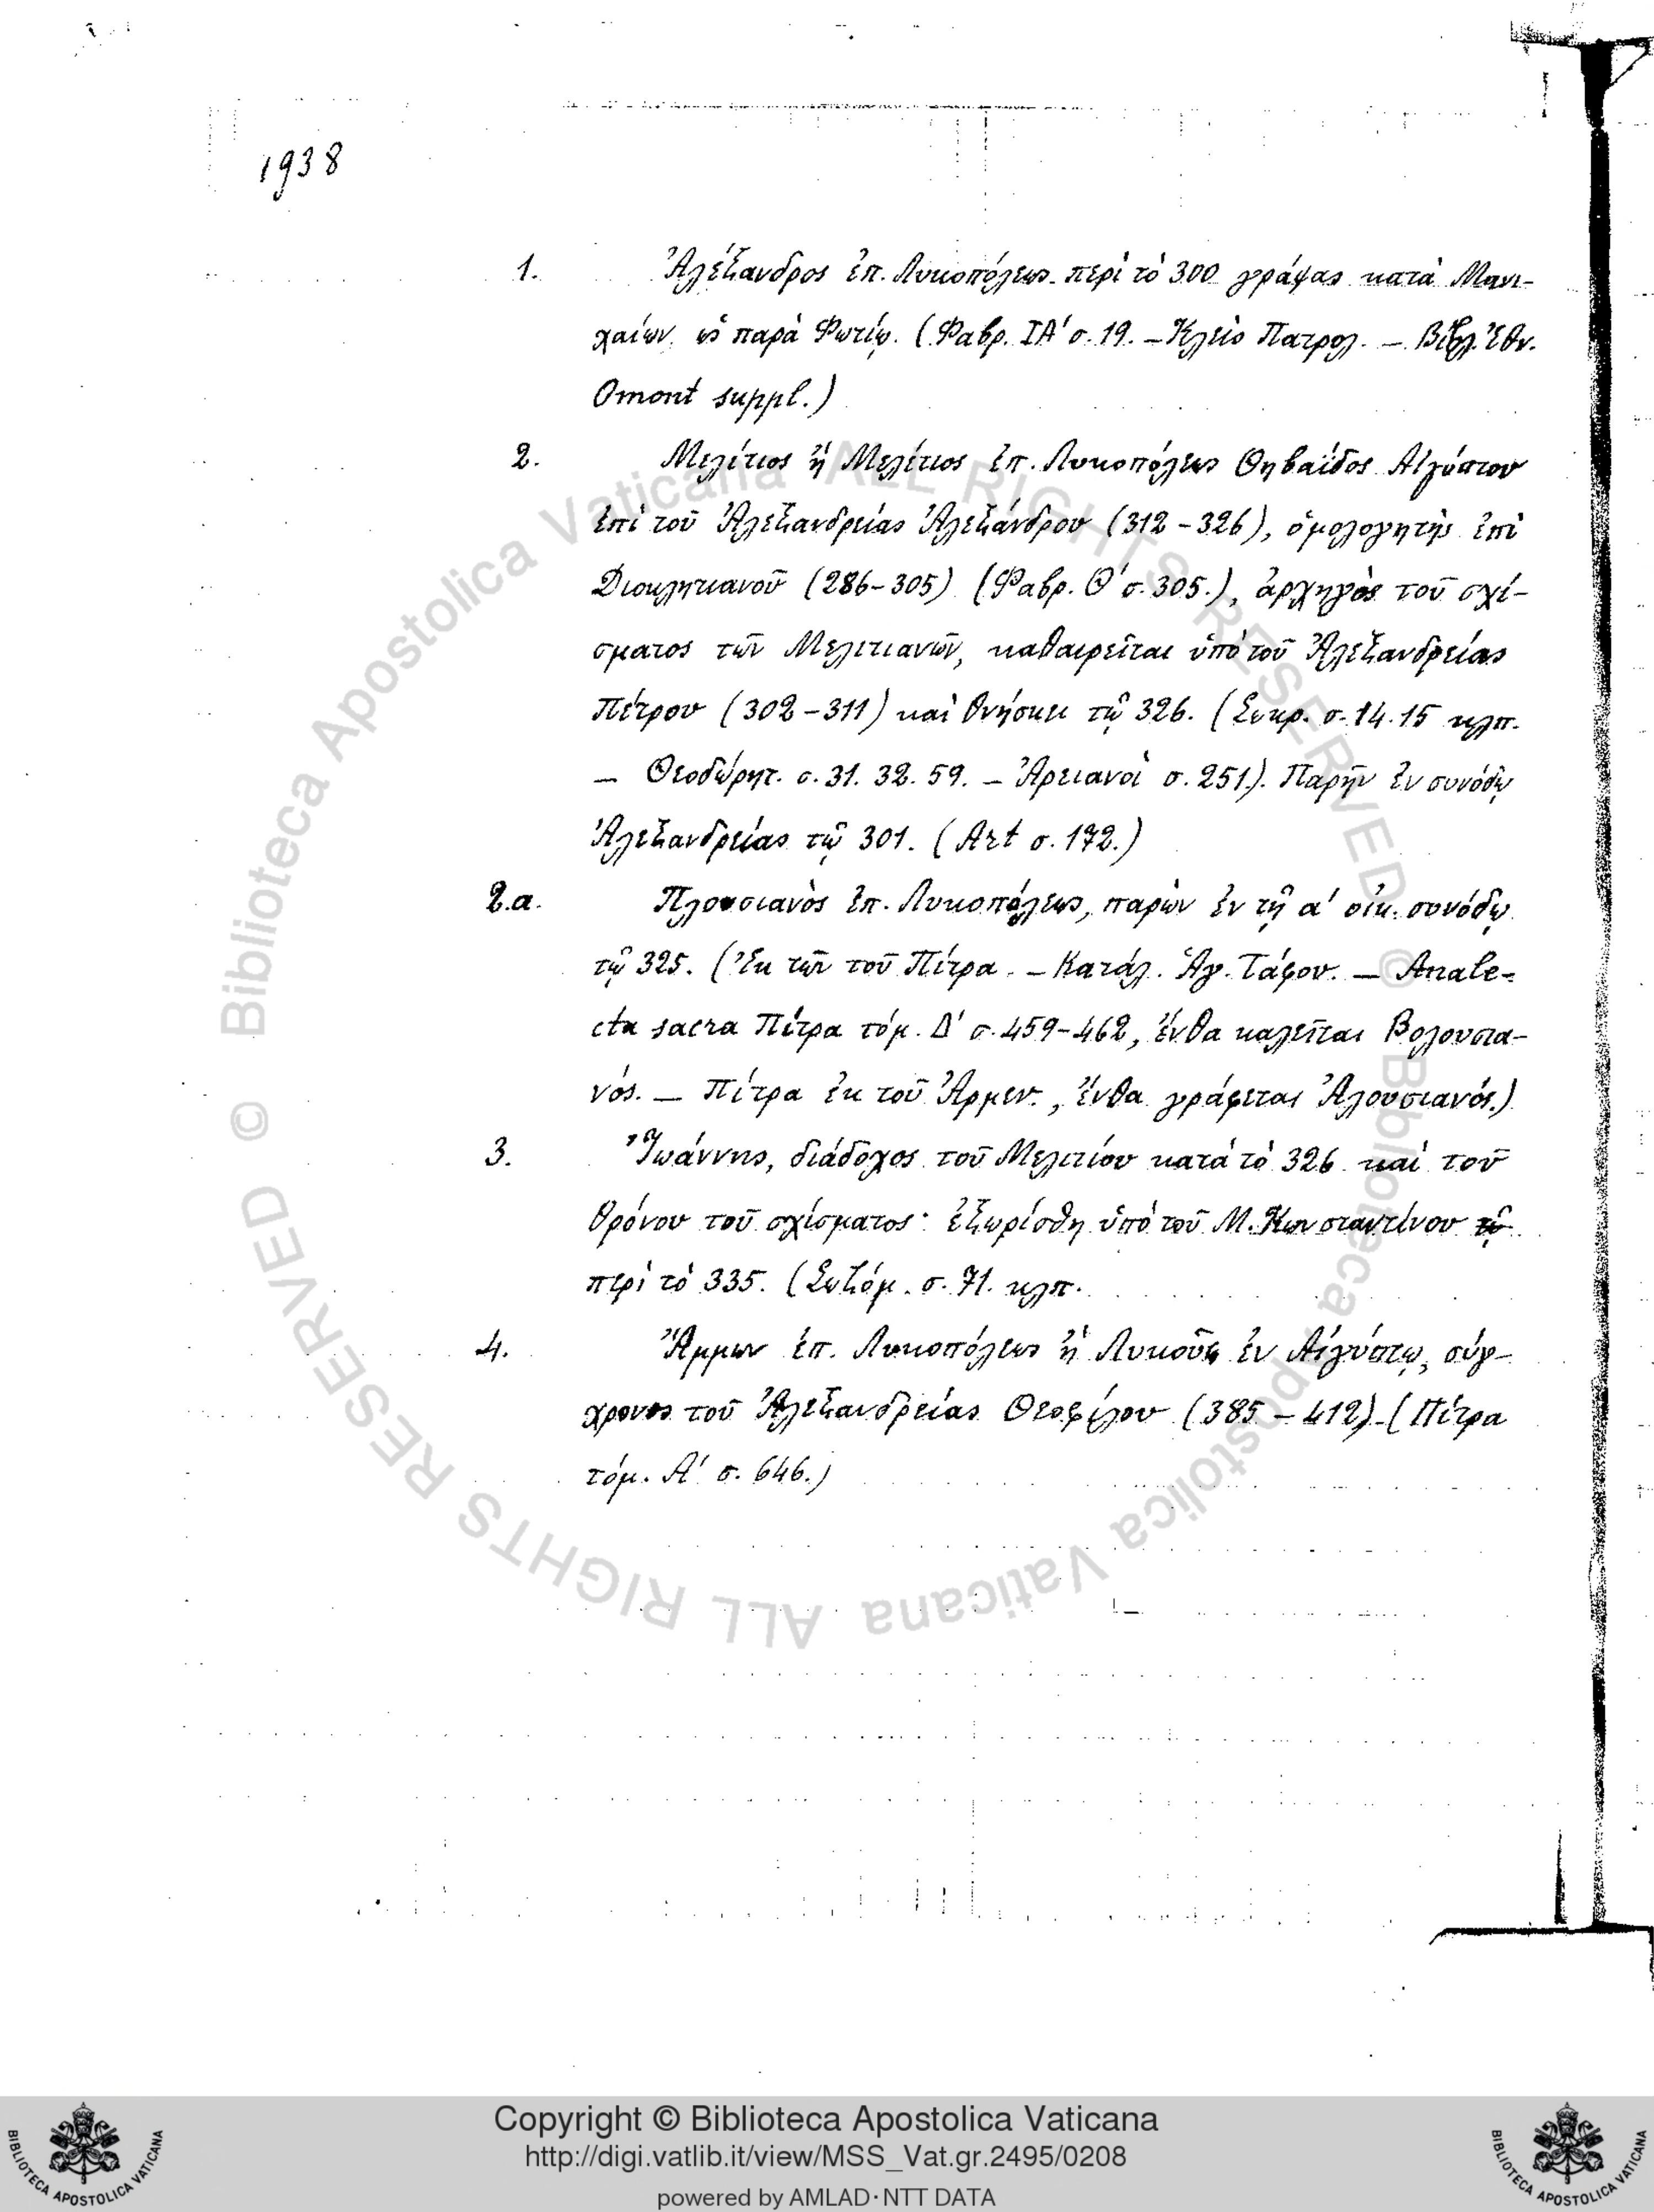 1938
1. Ἀλέξανδρος ἐπ. Λυκοπόλεως περὶ τὸ 300 γράψας κατὰ Μανι-
χαίων ὡς παρὰ Φωτίῳ. (Φαβρ. ΙΑ' σ. 19. – Κλεὶς Πατρολ. – Βιβλ. Ἐθν.
Omont suppl.)
2. Μελίτιος ἢ Μελέτιος ἐπ. Λυκοπόλεως Θηβαΐδος Αἰγύπτου
ἐπὶ τοῦ Ἀλεξανδρείας Ἀλεξάνδρου (312-326), ὁμολογητὴς ἐπὶ
Διοκλητιανοῦ (286-305) (Φαβρ. Θ' σ. 305.), ἀρχηγὸς τοῦ σχί-
σματος τῶν Μελιτιανῶν, καθαιρεῖται ὑπὸ τοῦ Ἀλεξανδρείας
Πέτρου (302-311) καὶ θνήσκει τῷ 326. (Σωκρ. σ. 14. 15 κλπ.
– Θεοδώρητ. σ. 31. 32. 59. – Ἀρειανοὶ σ. 251.). Παρῆν ἐν συνόδῳ
Ἀλεξανδρείας τῷ 301. (Art σ. 172.)
2.α. Πλουσιανὸς ἐπ. Λυκοπόλεως, παρὼν ἐν τῇ α' οἰκ. συνόδῳ
τῷ 325. (Ἐκ τῶν τοῦ Πίτρα. – Κατάλ. Ἁγ. Τάφου. – Anale-
cta sacra Πίτρα τόμ. Δ' σ. 459-462, ἔνθα καλεῖται Βολουσια-
νός. – Πίτρα ἐκ τοῦ Ἀρμεν., ἔνθα γράφεται Ἀλουσιανός.)
3. Ἰωάννης, διάδοχος τοῦ Μελιτίου κατὰ τὸ 326 καὶ τοῦ
θρόνου τοῦ σχίσματος· ἐξωρίσθη ὑπὸ τοῦ Μ. Κωνσταντίνου τῷ
περὶ τὸ 335. (Σωζόμ. σ. 71. κλπ.
4. Ἄμμων ἐπ. Λυκοπόλεως ἢ Λυκοῦς ἐν Αἰγύπτῳ, σύγ-
χρονος τοῦ Ἀλεξανδρείας Θεοφίλου (385-412). (Πίτρα
τόμ. Α' σ. 646.)
© Biblioteca Apostolica Vaticana ALL RIGHTS RESERVED © Biblioteca Apostolica Vaticana ALL RIGHTS RESERVED
Copyright © Biblioteca Apostolica Vaticana
http://digi.vatlib.it/view/MSS_Vat.gr.2495/0208
powered by AMLAD·NTT DATA
BIBLIOTECA APOSTOLICA VATICANA
BIBLIOTECA APOSTOLICA VATICANA